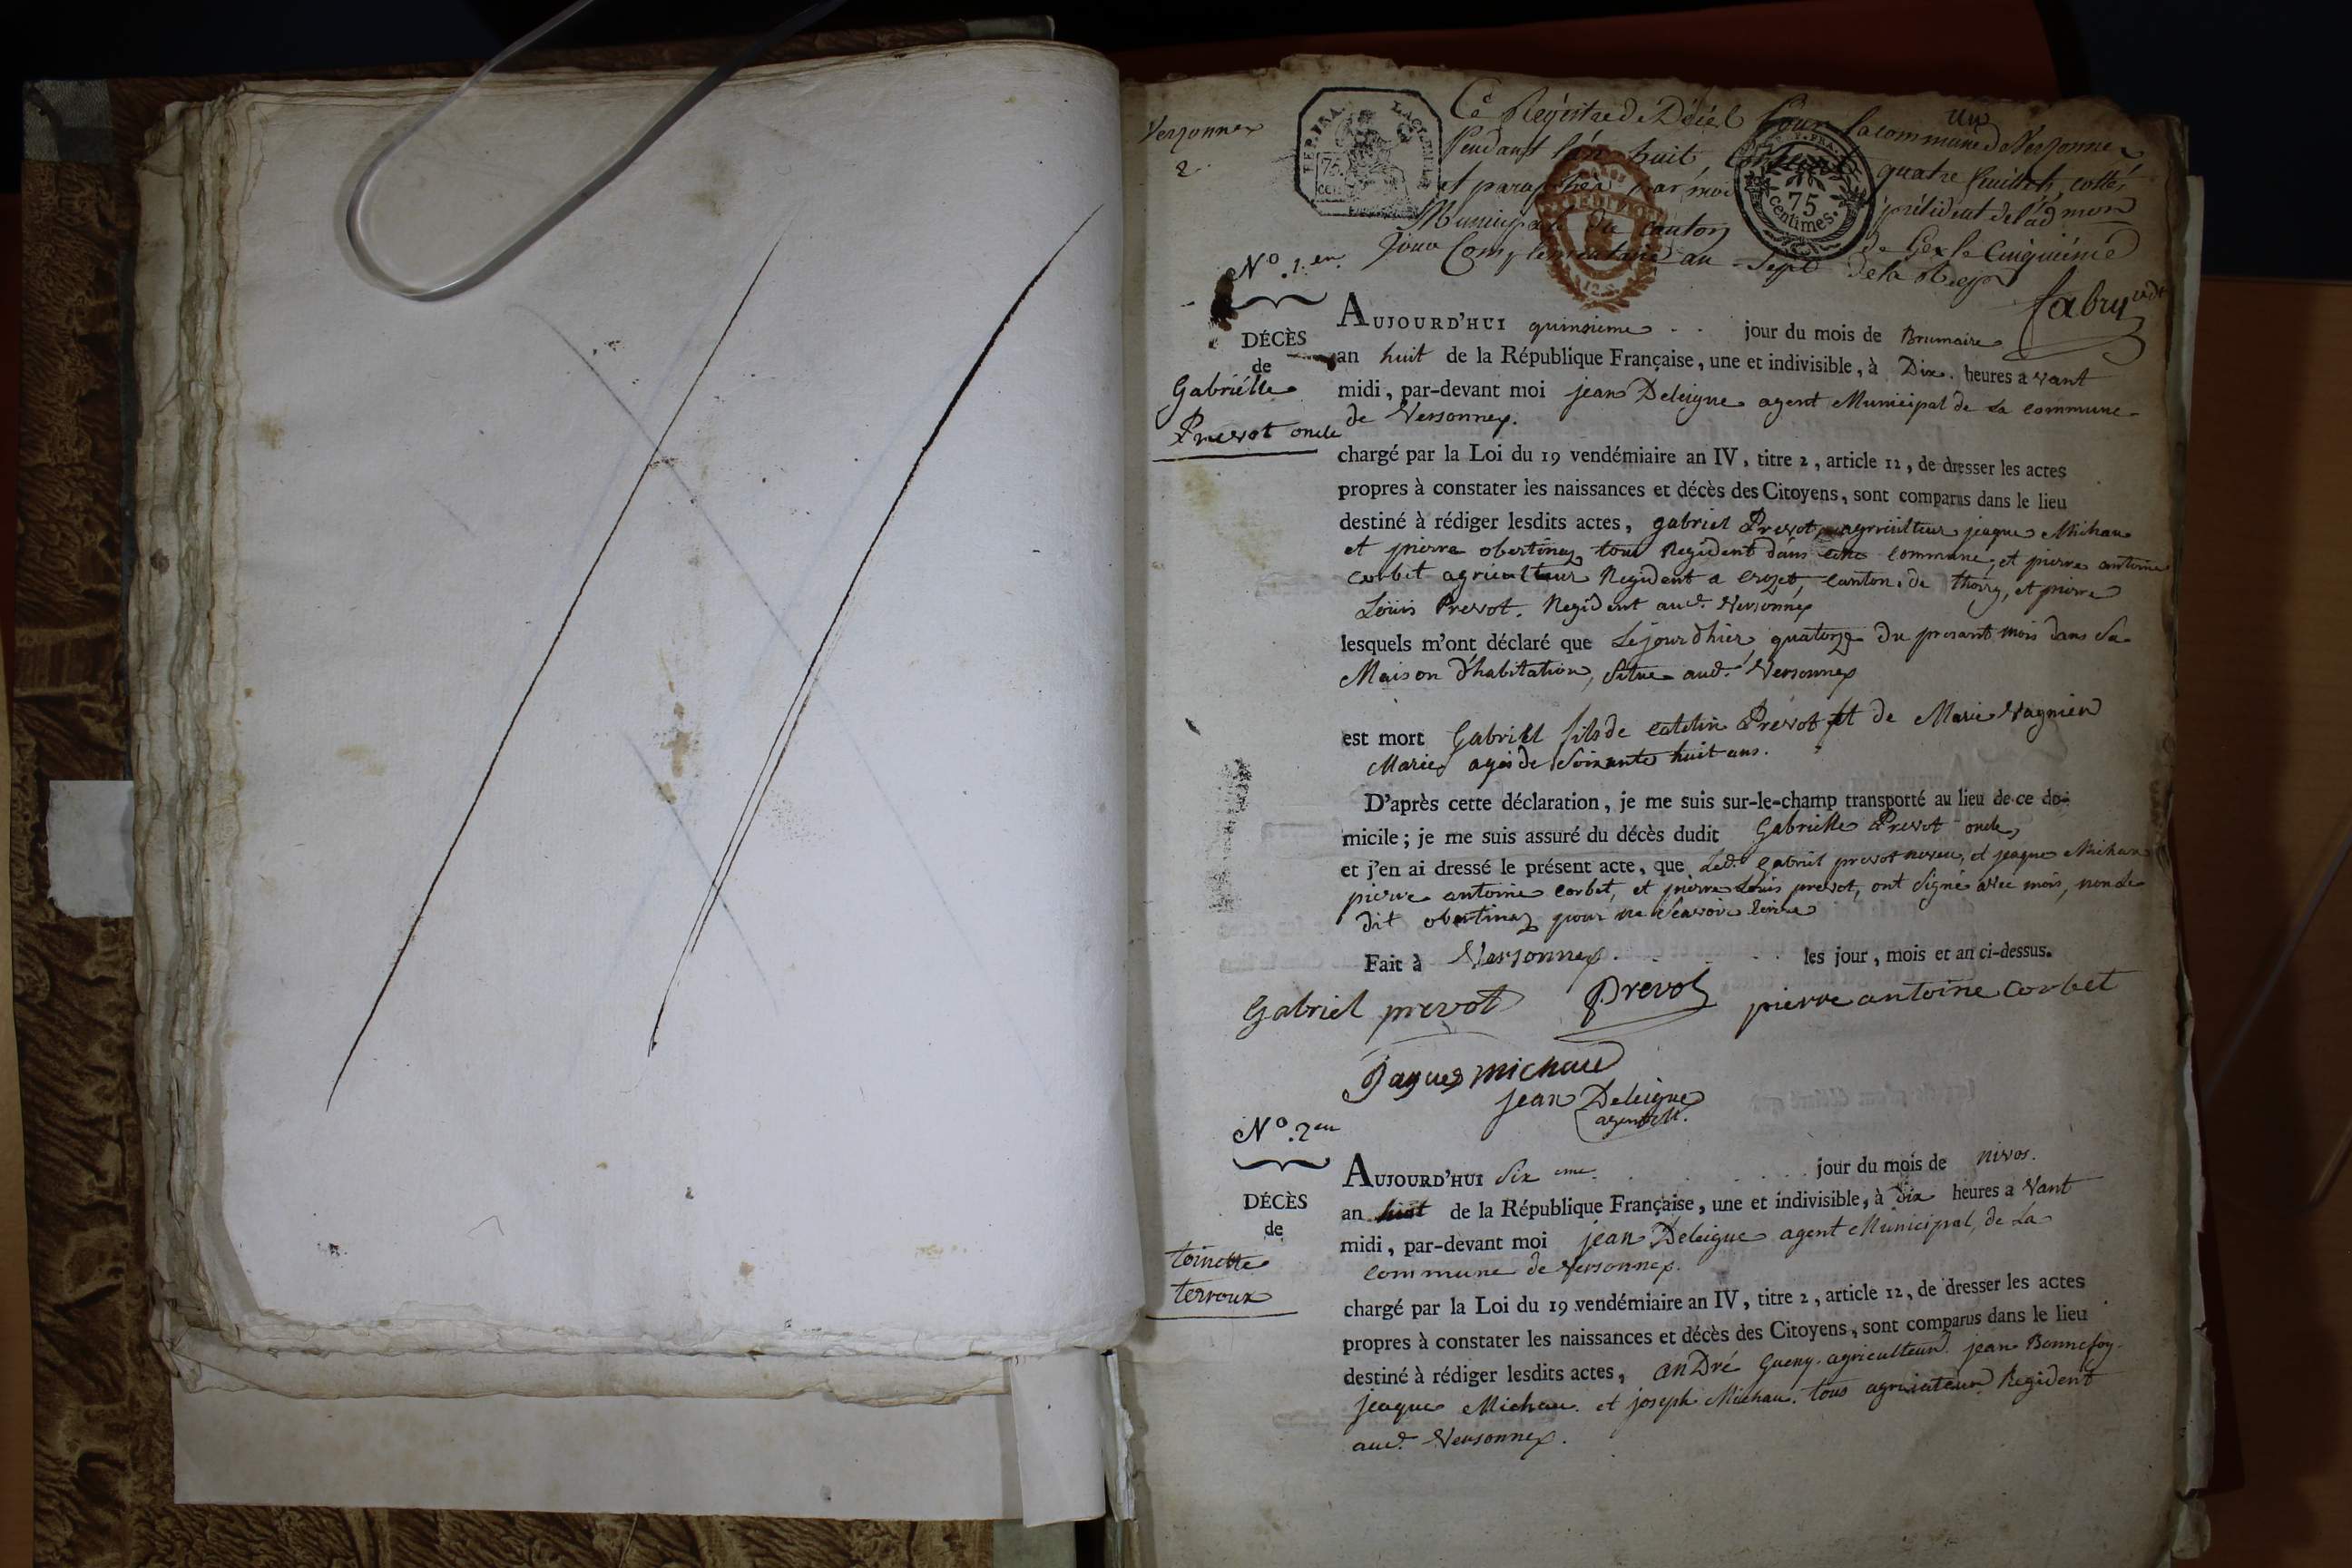 Versonnex
2.
un
REP. FRA.
75
cen
Ce Registre de Décès pour la commune de Versonnex
Pendant l'an huit, Contenant quatre feuillets, cottés
et paraphés par moi président de l'adm.on
Municipale du Canton de Gex le Cinquième
Jour Complémentaire an Sept de la Rep.
fabry
75
centimes.
N.º 1.er
DÉCÈS
de
Gabriélle
Prevot oncle
AUJOURD'HUI quinsieme . . jour du mois de Brumaire
an huit de la République Française, une et indivisible, à Dix. heures avant
midi, par-devant moi jean Deleigue agent Municipal de La commune
de Versonnex.
chargé par la Loi du 19 vendémiaire an IV, titre 2, article 12, de dresser les actes
propres à constater les naissances et décès des Citoyens, sont comparus dans le lieu
destiné à rédiger lesdits actes, gabriel Prevot, agriculteur jeaque Michau
et pierre obertinaz tous Regident dans cette commune, et pierre antoine
corbet agriculteur Regident a crozet, canton de thoiry, et pierre
Loüis Prevot. Regident aud.t Versonnex
lesquels m'ont déclaré que Le jour d'hier, quatorze du presant mois dans Sa
Maison d'habitation, Situe aud.t Versonnex
est mort Gabriel fils de catelin Prevot et de Marie Vagnier
Marie agés de Soixante huit ans.
D'après cette déclaration, je me suis sur-le-champ transporté au lieu de ce do-
micile; je me suis assuré du décès dudit Gabrielle Prevot oncle,
et j'en ai dressé le présent acte, que Led.t Gabriel prevot neveu, et jeaque Michau
pierre antoine corbet, et pierre Louis prevot, ont Signé avec mois, non Le
dit obertinaz pour ne Scavoir Ecrire
Fait à Versonnex. . . . les jour, mois et an ci-dessus.
Gabriel prevot Prevot pierre antoine corbet
Jaques michaud
jean Deleigue
agent M.
N.º 2.eu
DÉCÈS
de
toinette
terroux
AUJOURD'HUI Six eme. jour du mois de nivos.
an huit de la République Française, une et indivisible, à dix heures avant
midi, par-devant moi jean Deleigue agent Municipal, de La
commune de Versonnex.
chargé par la Loi du 19 vendémiaire an IV, titre 2, article 12, de dresser les actes
propres à constater les naissances et décès des Citoyens, sont comparus dans le lieu
destiné à rédiger lesdits actes, anDré Gueny. agriculteur. jean Bonnefoy.
jeaque Michau. et joseph Michau. tous agriculteur Regident
aud.t Versonnex.